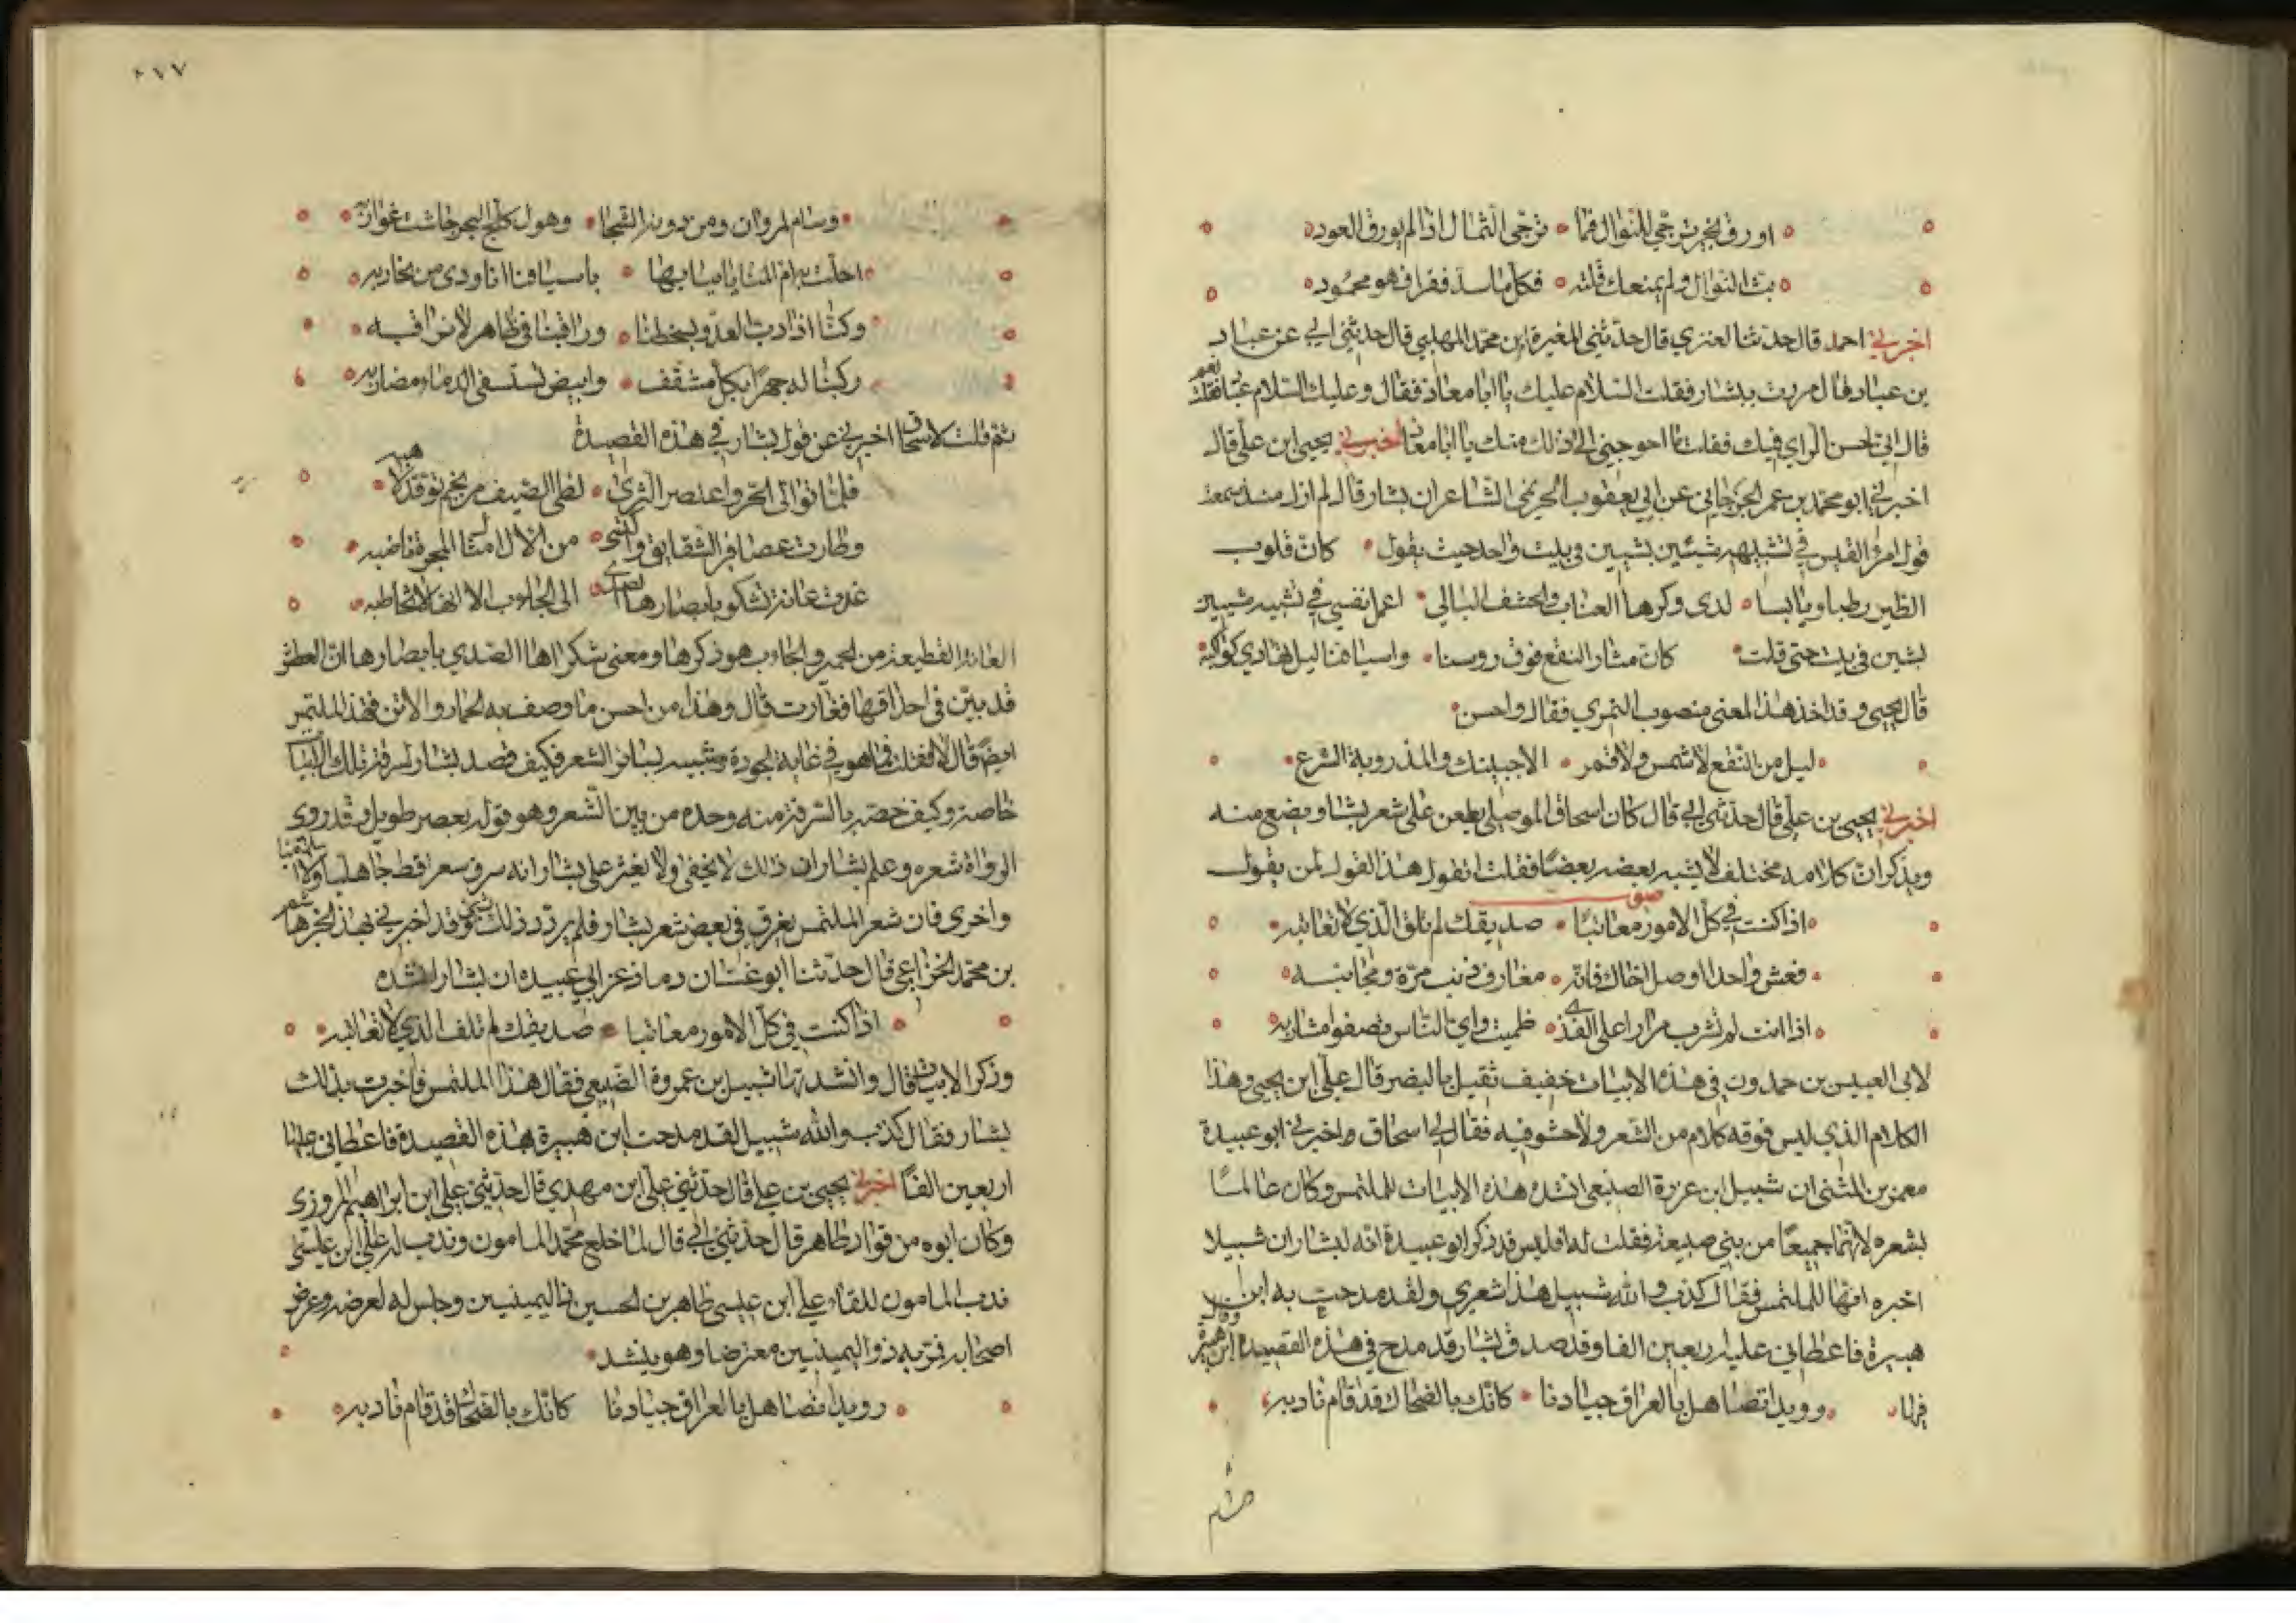 اورق بخير ترجى للنوال فما ترجى الثمار اذا لم يورق العود
بث النوال ولم يمنعك قلته فكل ما سد فقرا فهو محمود
اخبرني احمد قال حدثنا العنزي قال حدثني المغيرة ابن محمد المهلبي قال حدثني ابي عن عباد
بن عباد قال مررت ببشار فقلت السلام عليك يا ابا معاذ فقال وعليك السلام عباد فقلت نعم
قال اني لحسن الراي فيك فقلت ما احوجني الى ذلك منك يا ابا معاذ اخبرني يحيى ابن علي قال
اخبرني ابو محمد بن عمر الجرجاني عن ابي يعقوب الخريمي الشاعر ان بشار قال لم ازل منذ سمعت
قول امرؤ القيس في تشبيهه شيئين بشيين في بيت واحد حيث يقول كان قلوب
الطير رطبا ويابسا لدى وكرها العناب والحشف البالي اعمل نفسي في تشبيه شيين
بشين في بيت حتى قلت كان مثار النقع فوق روسنا واسيافنا ليل تهادي كواكبه
قال يحيى وقد اخذ هذا المعنى منصوب النمري فقال واحسن
ليل من النقع لا شمس ولا قمر الا جبينك والمذروبة الشرع
اخبرني يحيى بن علي قال حدثني ابي قال كان اسحاق الموصلي يطعن على شعر بشار ويضع منه
ويذكر ان كلامه مختلف لا يشبه بعضه بعضا فقلت اتقول هذا القول لمن يقول
صوت
اذا كنت في كل الامور معاتبا صديقك لم تلق الذي لا تعاتبه
فعش واحدا او صل اخاك فانه مقارف ذنب مرة ومجانبه
اذا انت لم تشرب مرارا على القذى ظميت واي الناس تصفوا مشاربه
لابي العبيس بن حمدون في هذه الابيات خفيف ثقيل بالبنصر قال علي ابن يحيى وهذا
الكلام الذي ليس فوقه كلام من الشعر ولا حشو فيه فقال لي اسحاق واخبرني ابو عبيدة
معمر بن المثنى ان شبيل ابن عزرة الضبعي انشده هذه الابيات للملتمس وكان عالما
بشعره لانهما جميعا من بني ضبيعة فقلت له افليس قد ذكر ابو عبيدة انه لبشار ان شبيلا
اخبره انها للملتمس فقال كذب والله شبيل هذا شعري ولقد مدحت به ابن
هبيرة فاعطاني عليه اربعين الفا وقد صدق بشار قد مدح في هذه القصيدة ابن هبيرة وقال
فيها رويدا تصاهل بالعراق جيادنا كانك بالضحاك قد قام نادبه
وسام
٢٧٧
وسام لمروان ومن دونه الشجا وهول كلج البحر جاشت غواربه
احلت به ام المنايا بناتها باسيافنا انا ردى من نحاربه
وكنا اذا دب العدو لسخطنا وراقبنا في ظاهر لا نراقبه
ركبنا له جهرا بكل مثقف وابيض تستسقى الدماء مضاربه
ثم قلت لاسحاق اخبرني عن قول بشار في هذه القصيدة
فلما تولى الحر واعتصر الثرى لظى الصيف من نجم توقد لاهبه
وطارت عصافير الشقايق واكتسى من الال امثال المجرة ناضبه
غدت عانة تشكو بابصارها الصدى الى الجاب الا انها لا تخاطبه
العانة القطيعة من الحمير والجاب هو ذكرها ومعنى شكواها الصدي بابصارها ان العطش
قد بين في احداقها فغارت قال وهذا من احسن ما وصف به الحمار والاتن فهذا للملتمس
ايضا قال لا فقلت فما هو في غاية الجودة وشبيه بساير الشعر فكيف قصد بشار لسرقة تلك الابيات
خاصة وكيف خصه بالسرقة منه وحده من بين الشعر وهو قوله بعصر طويل وقد روى
الرواة شعره وعلم بشار ان ذلك لا يخفى ولا يعثر على بشار انه سرق شعرا قط جاهليا ولا اسلاميا
واخرى فان شعر الملتمس يعرف في بعض شعر بشار فلم يردد ذلك بشي وقد اخبرني بهذا الخبر هاشم
بن محمد الخزاعي قال حدثنا ابو غسان دماذ عن ابي عبيدة ان بشارا انشده
اذا كنت في كل الامور معاتبا صديقك لم تلق الذي لا تعاتبه
وذكر الابيات قال وانشدتها شبيل بن عمروة الضبعي فقال هذا للملتمس فاخبرت بذلك
بشار فقال كذب والله شبيل لقد مدحت ابن هبيرة بهذه القصيدة فاعطاني عليها
اربعين الفا اخبرني يحيى بن علي قال حدثني علي ابن مهدي قال حدثني علي ابن ابراهيم المروزي
وكان ابوه من قواد طاهر قال حدثني ابي قال لما خلع محمد المامون وندب له علي ابن عيسى
ندب المامون للقاء علي ابن عيسى طاهر بن الحسين ذا اليمينين وجلس له لعرضه وعرض
اصحابه فمر به ذو اليمينين معترضا وهو ينشد
رويدا تصاهل بالعراق جيادنا كانك بالضحاك قد قام نادبه